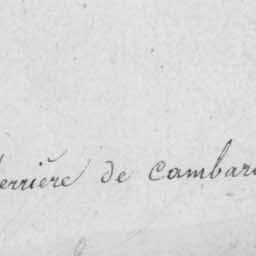 errière de cambar